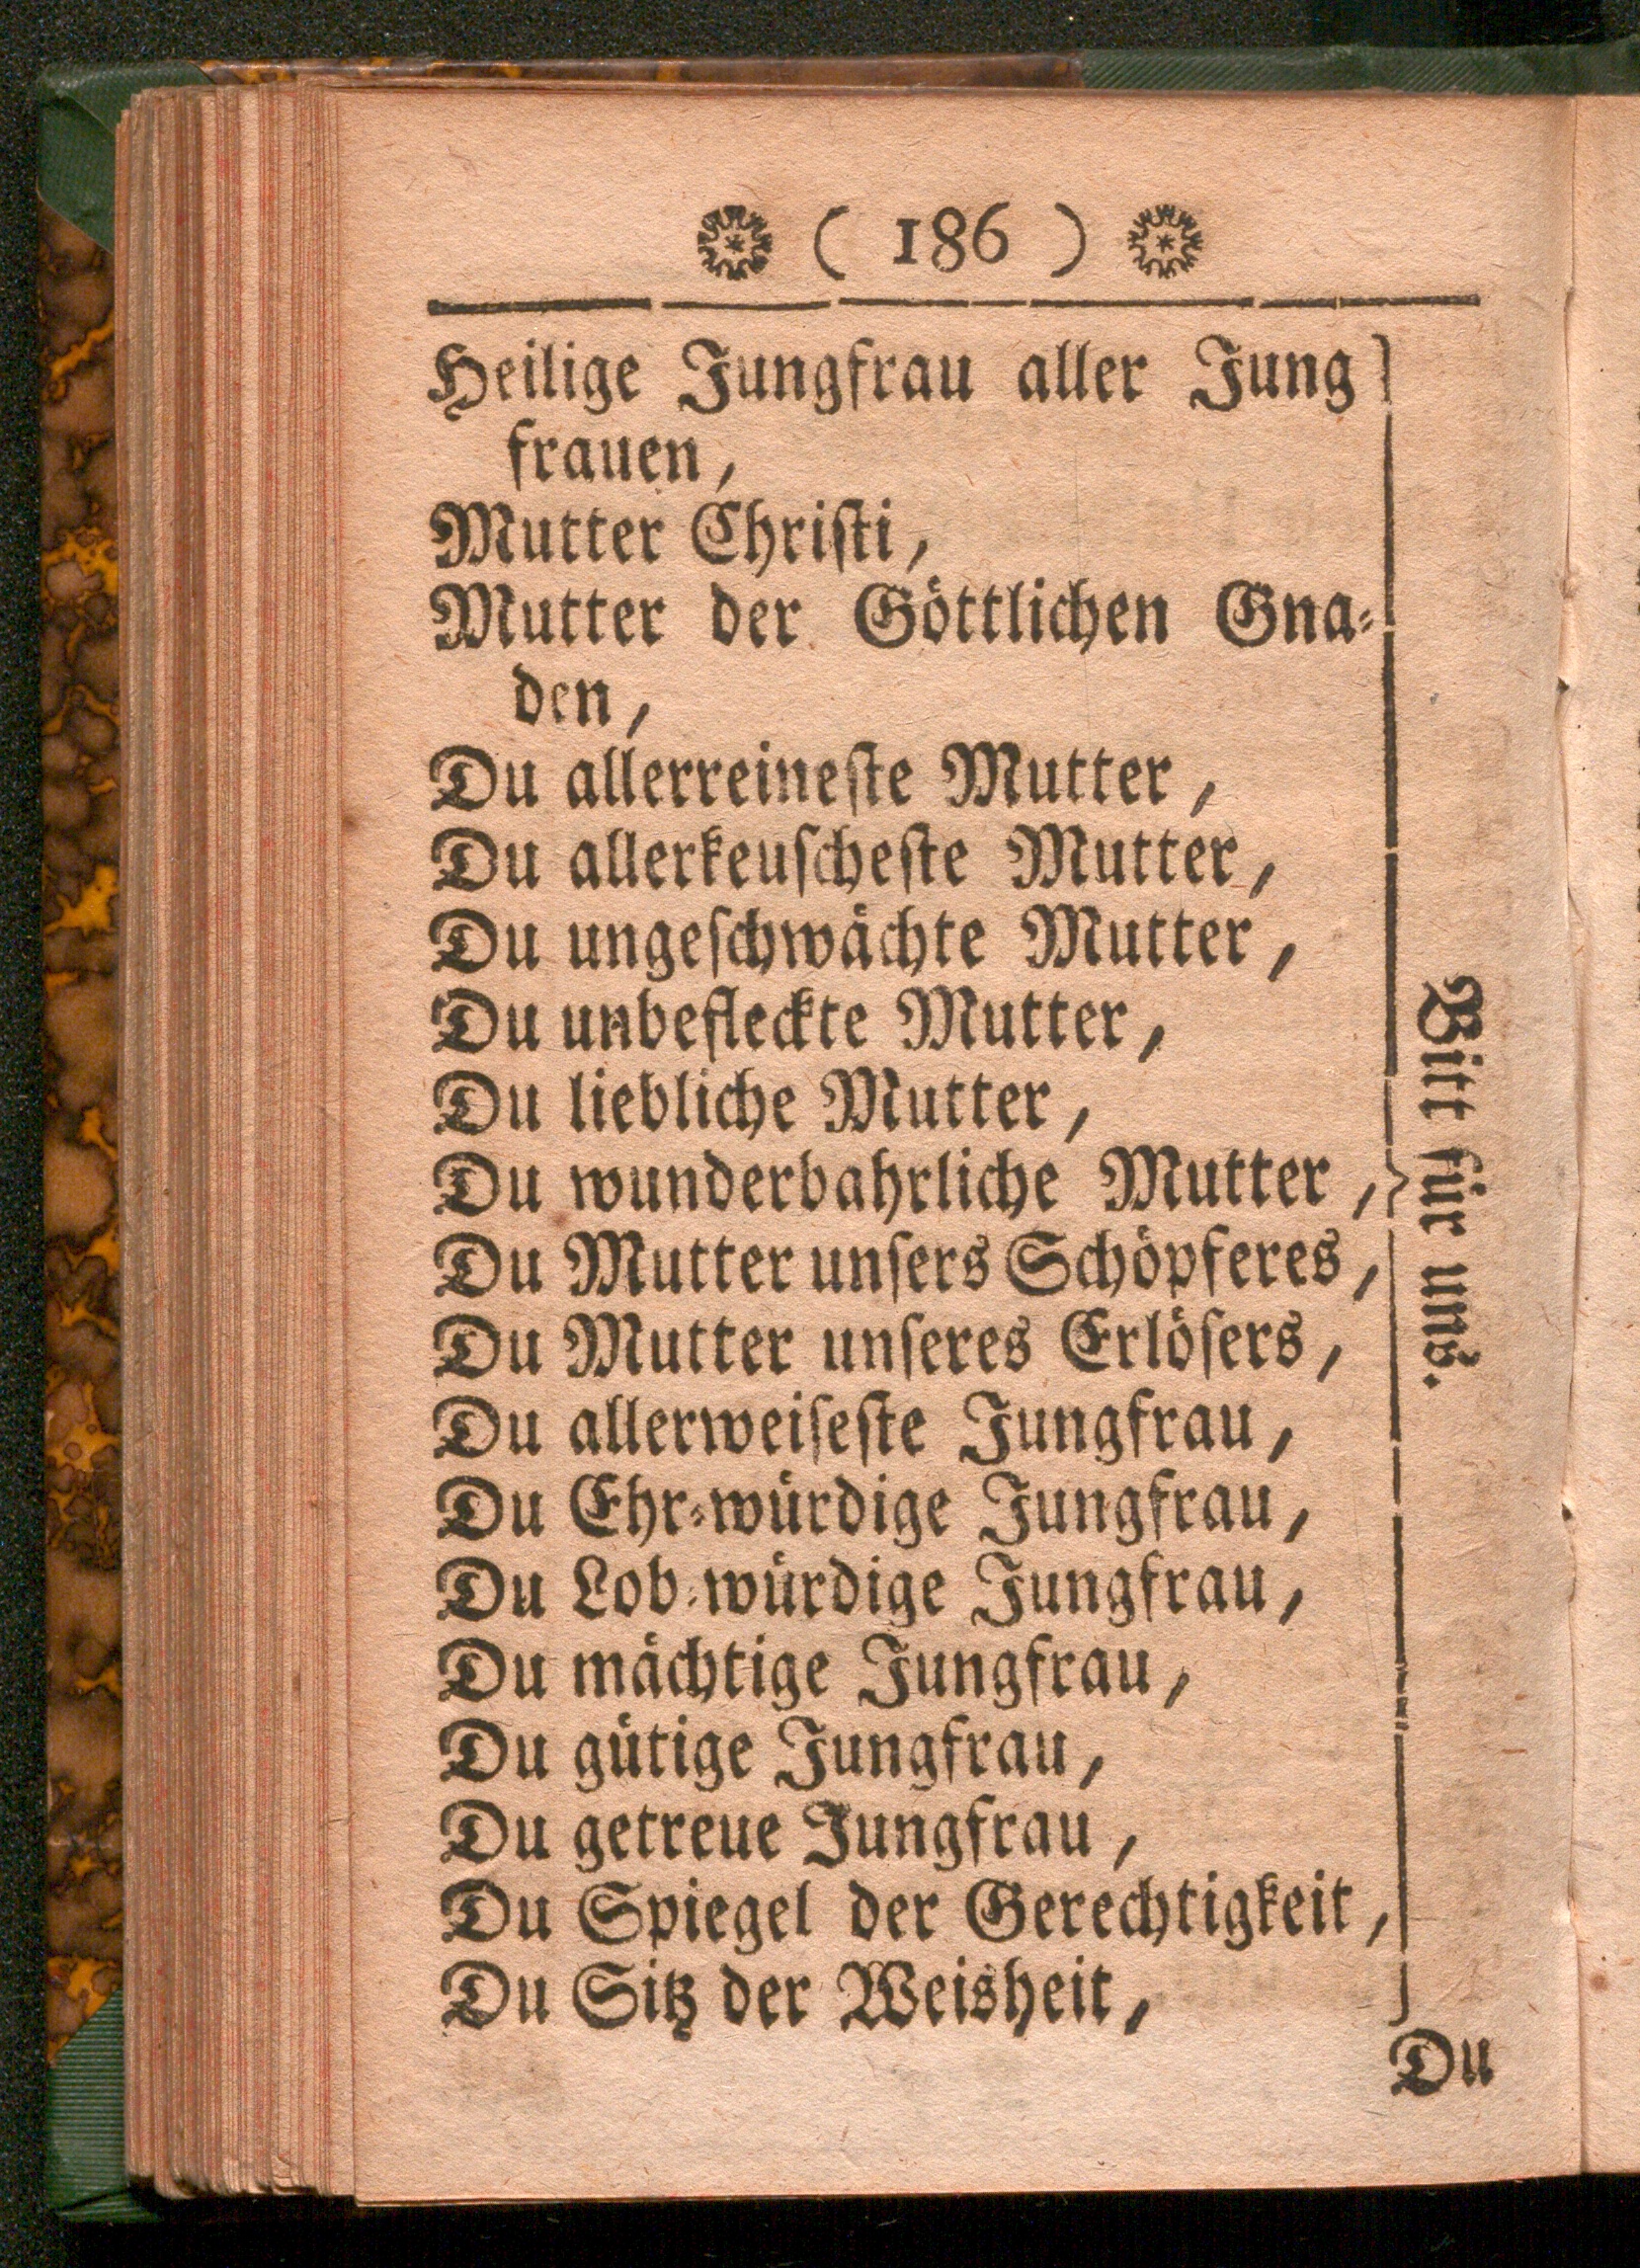 ( 186 )
Heilige Jungfrau aller Jung
frauen,
Mutter Chriſti,
Mutter der Göttlichen Gna⸗
den,
Du allerreineſte Mutter,
Du allerkeuſcheſte Mutter,
Du ungeſchwächte Mutter,
Du unbefleckte Mutter,
Du liebliche Mutter,
Du wunderbahrliche Mutter,
Du Mutter unſers Schöpferes,
Du Mutter unſeres Erlöſers,
Du allerweiſeſte Jungfrau,
Du Ehr⸗würdige Jungfrau,
Du Lob⸗würdige Jungfrau,
Du mächtige Jungfrau,
Du gütige Jungfrau,
Du getreue Jungfrau,
Du Spiegel der Gerechtigkeit,
Du Sitz der Weisheit,
Bitt für uns.
Du